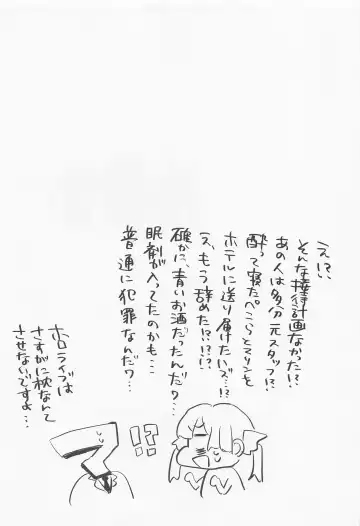 え!?
そんな接待計画なかった!?
あの人は多分元スタッフ!?
酔って寝たぺこらとマリンを
ホテルに送り届けたハズ…!?
え、もう辞めた!?!?!?
確かに、青いお酒だったんだ?…
眠剤が入ってたのかも…
普通に犯罪なんだワ…
ホロライブは
さすがに枕なんて
させないですよ…
!?